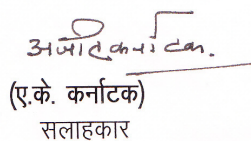 अजीत कर्नाटक.
(ए.के. कर्नाटक)
सलाहकार